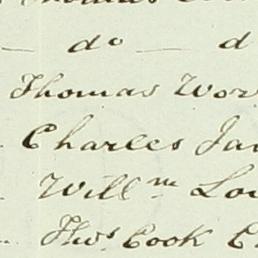 Thomas
— do — d
Thomas Wor
Charles Ja
Willm Lo
Thos Cook C